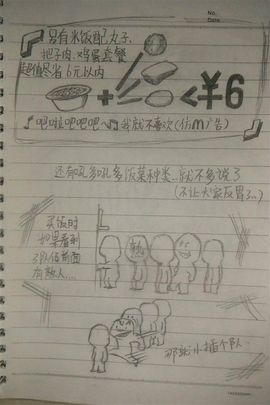 No.
Date
只有米饭配丸子、
把子肉、鸡蛋套餐
超值尽省6元以内
+ < ¥6
♪吧啦吧吧吧~♫我就不喜欢(仿m广告)
还有吼多吼多饭菜种类...就不多说了
(不让大家反胃了..)
买饭时
如果看到
队伍前面
有熟人....
熟人
那就小插个队.